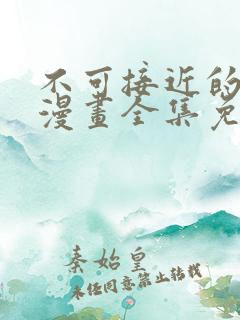 不可接近的
漫畫全集免
秦始皇
未经同意禁止转载